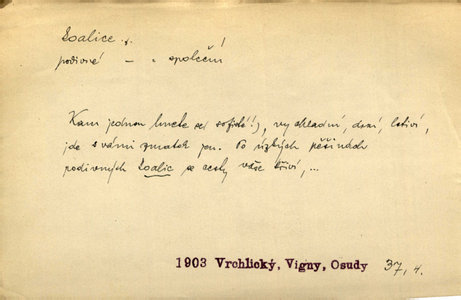 koalice f.
podivné – : společní
Kam jednou hnete se, sofisté!), vy chladní, drzí, lstiví,
jde s vámi zmatek jen. Po úzkých pěšinách
podivných koalic se cesty vaše křiví, ...
1903 Vrchlický, Vigny, Osudy 37, 4.